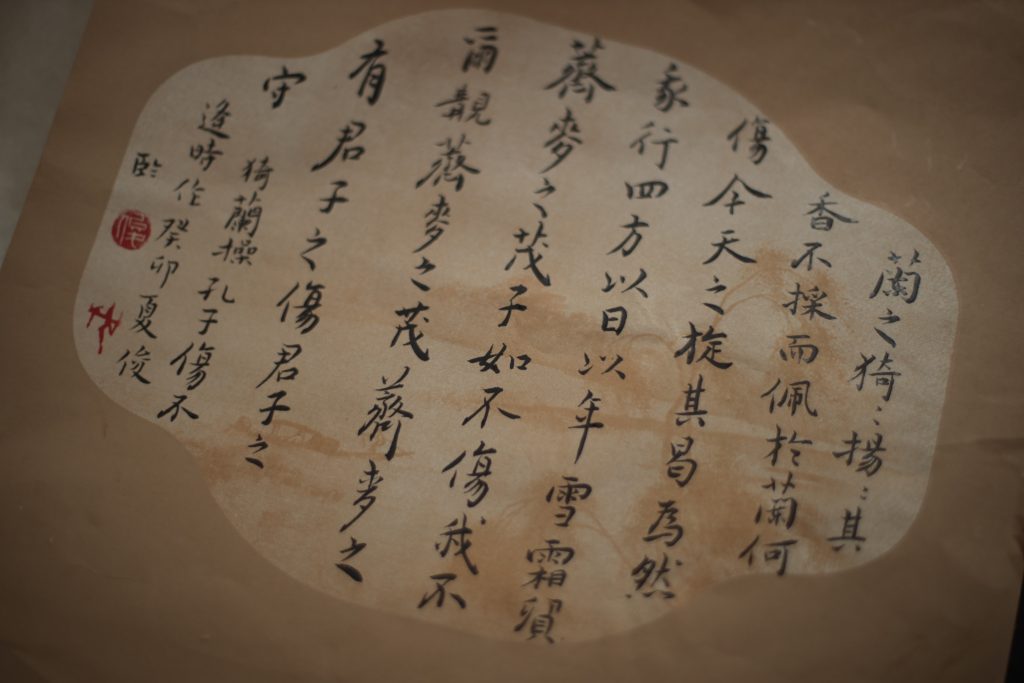 蘭之猗：揚：其
香不採而佩於蘭何
傷今天之旋其曷為然
我行四方以日以年雪霜貿
薺麥之茂子如不傷我不
爾覯薺麥之茂薺麥之
有君子之傷君子之
守
猗蘭操孔子傷不
逢時作癸卯夏俊
臨